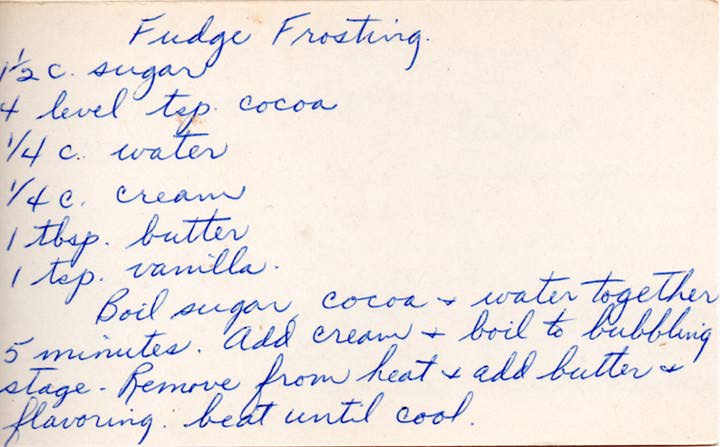 Fudge Frosting.
1½ c. sugar
4 level tsp. cocoa
1/4 c. water
1/4 c. cream
1 tbsp. butter
1 tsp. vanilla.
Boil sugar, cocoa + water together
5 minutes. Add cream + boil to bubbling
stage - Remove from heat + add butter +
flavoring. beat until cool.